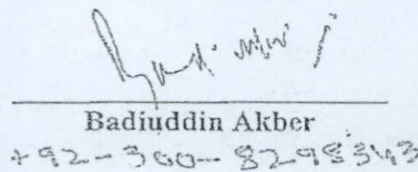 Badiuddin Akber
+92-300-8298343